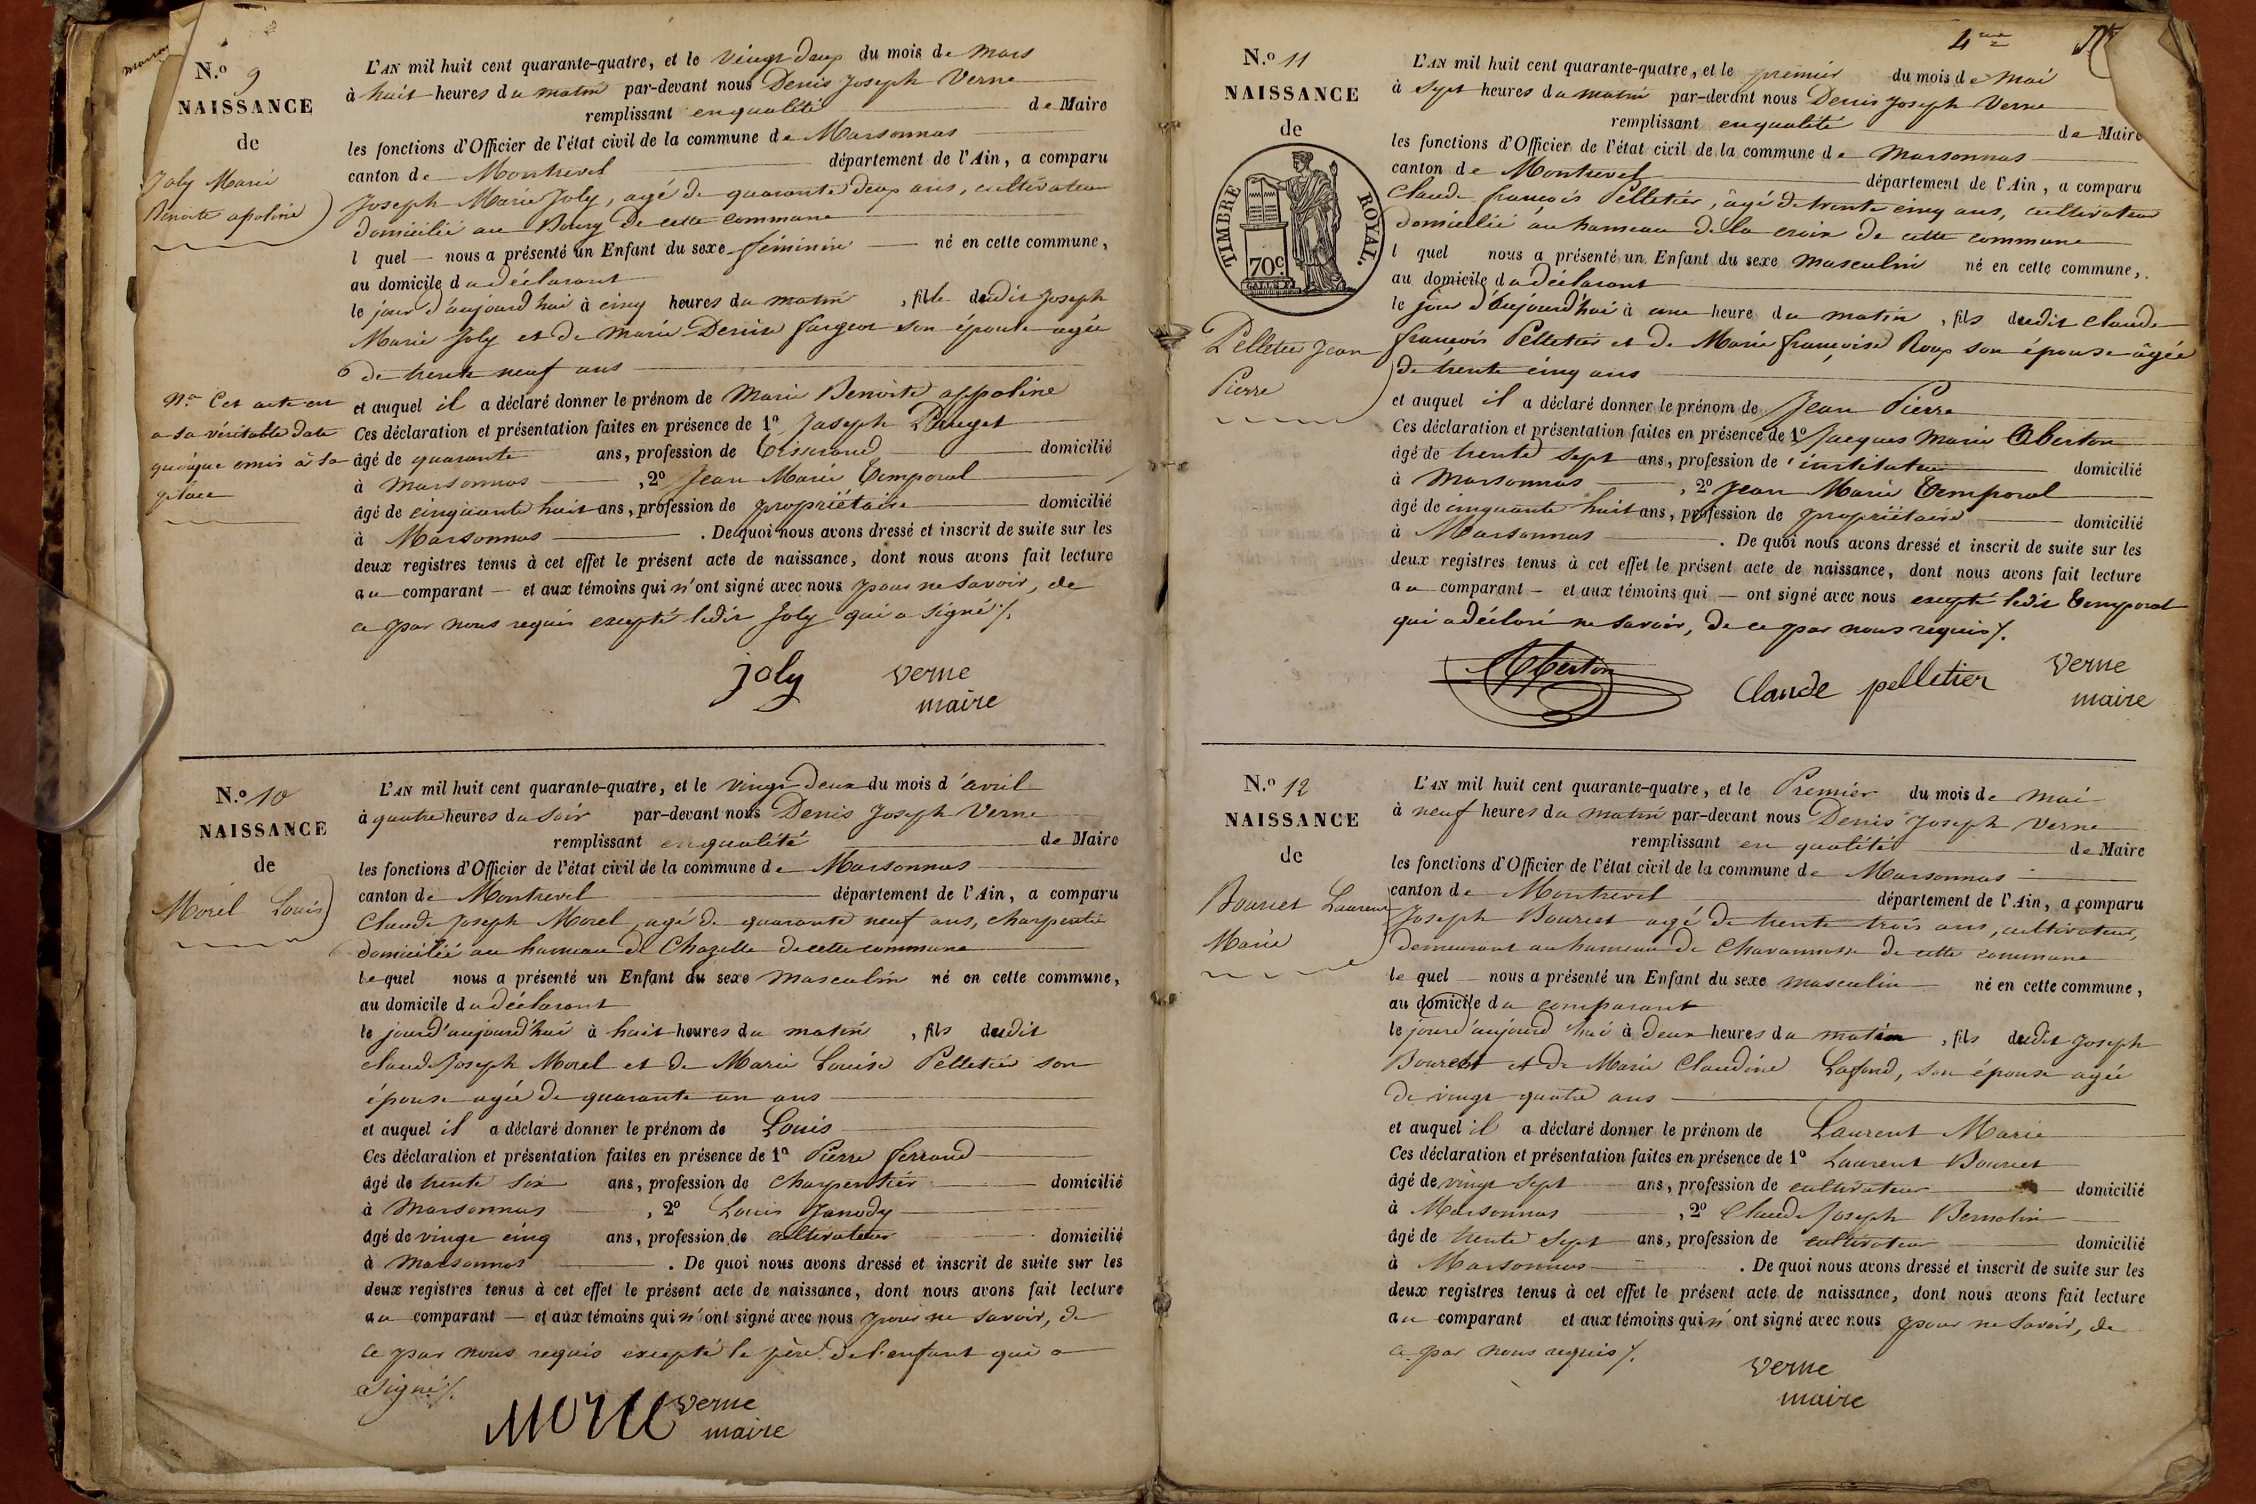 N.º 9
NAISSANCE
de
Joly Marie
Benoite apoline
Nª Cet acte est
a sa véritable date
quoique omis à sa
place
L'AN mil huit cent quarante-quatre, et le vingt deux du mois de Mars
à huit heures du matin par-devant nous Denis Joseph Verne
remplissant en qualité de Maire
les fonctions d'Officier de l'état civil de la commune de Marsonnas
canton de Montrevel département de l'Ain, a comparu
Joseph Marie Joly, agé de quarante deux ans, cultivateur
domicilié au Bourg de cette commune
l quel nous a présenté un Enfant du sexe féminin né en cette commune,
au domicile du déclarant
le jour d'aujourd'hui à cinq heures du matin, fille dudit Joseph
Marie Joly et de Marie Denise fargeot son épouse agée
de trente neuf ans
et auquel il a déclaré donner le prénom de Marie Benoite appoline
Ces déclaration et présentation faites en présence de 1º Joseph
âgé de quarante ans, profession de Tisserand domicilié
à Marsonnas, 2º Jean Marie Temporal
âgé de cinquante huit ans, profession de propriétaire domicilié
à Marsonnas. De quoi nous avons dressé et inscrit de suite sur les
deux registres tenus à cet effet le présent acte de naissance, dont nous avons fait lecture
au comparant et aux témoins qui n'ont signé avec nous pour ne savoir, de
ce par nous requis excepté ledit Joly qui a signé ./.
joly verne
maire
N.º 10
NAISSANCE
de
Morel Louis
L'AN mil huit cent quarante-quatre, et le vingt deux du mois d'avril
à quatre heures du soir par-devant nous Denis Joseph Verne
remplissant en qualité de Maire
les fonctions d'Officier de l'état civil de la commune de Marsonnas
canton de Montrevel département de l'Ain, a comparu
Claude Joseph Morel, agé de quarante neuf ans, charpentier
domicilié au hameau de Chazelle de cette commune
lequel nous a présenté un Enfant du sexe masculin né en cette commune,
au domicile du déclarant
le jour d'aujourd'hui à huit heures du matin, fils dudit
claude Joseph Morel et de Marie Louise Pelletier son
épouse agée de quarante un ans
et auquel il a déclaré donner le prénom de Louis
Ces déclaration et présentation faites en présence de 1º Pierre ferrand
âgé de trente six ans, profession de charpentier domicilié
à Marsonnas, 2º Louis Janody
âgé de vingt cinq ans, profession de cultivateur domicilié
à Marsonnas. De quoi nous avons dressé et inscrit de suite sur les
deux registres tenus à cet effet le présent acte de naissance, dont nous avons fait lecture
au comparant et aux témoins qui n'ont signé avec nous pour ne savoir, de
ce par nous requis excepté le père de l'enfant qui a
signé ./.
Morel verne
maire
4
N.º 11
NAISSANCE
de
TIMBRE ROYAL.
70c
Pelletier Jean
Pierre
L'AN mil huit cent quarante-quatre, et le premier du mois de Mai
à sept heures du matin par-devant nous Denis Joseph Verne
remplissant en qualité de Maire
les fonctions d'Officier de l'état civil de la commune de Marsonnas
canton de Montrevel département de l'Ain, a comparu
Claude françois Pelletier, âgé de trente cinq ans, cultivateur
domicilié au hameau de la croix de cette commune
l quel nous a présenté un Enfant du sexe masculin né en cette commune,
au domicile du déclarant
le jour d'aujourd'hui à une heure du matin, fils dudit claude
françois Pelletier et de Marie françoise Roux son épouse âgée
de trente cinq ans
et auquel il a déclaré donner le prénom de Jean Pierre
Ces déclaration et présentation faites en présence de 1º Jacques Marie Oberton
âgé de trente sept ans, profession de instituteur domicilié
à Marsonnas, 2º Jean Marie Temporal
âgé de cinquante huit ans, profession de propriétaire domicilié
à Marsonnas. De quoi nous avons dressé et inscrit de suite sur les
deux registres tenus à cet effet le présent acte de naissance, dont nous avons fait lecture
au comparant et aux témoins qui ont signé avec nous excepté ledit Temporal
qui a déclaré ne savoir, de ce par nous requis ./.
Claude pelletier verne
maire
N.º 12
NAISSANCE
de
Bourcet Laurent
Marie
L'AN mil huit cent quarante-quatre, et le Premier du mois de Mai
à neuf heures du matin par-devant nous Denis Joseph Verne
remplissant en qualité de Maire
les fonctions d'Officier de l'état civil de la commune de Marsonnas
canton de Montrevel département de l'Ain, a comparu
Joseph Bourcet agé de trente trois ans, cultivateur,
demeurant au hameau de Chavannosse de cette commune
lequel nous a présenté un Enfant du sexe masculin né en cette commune,
au domicile du comparant
le jour d'aujourd'hui à deux heures du matin, fils dudit Joseph
Bourcet et de Marie Claudine Lafond, son épouse agée
de vingt quatre ans
et auquel il a déclaré donner le prénom de Laurent Marie
Ces déclaration et présentation faites en présence de 1º Laurent Bourcet
âgé de vingt sept ans, profession de cultivateur domicilié
à Marsonnas, 2º Claude Joseph Bernolin
âgé de trente sept ans, profession de cultivateur domicilié
à Marsonnas. De quoi nous avons dressé et inscrit de suite sur les
deux registres tenus à cet effet le présent acte de naissance, dont nous avons fait lecture
au comparant et aux témoins qui n'ont signé avec nous pour ne savoir, de
ce par nous requis ./.
verne
maire